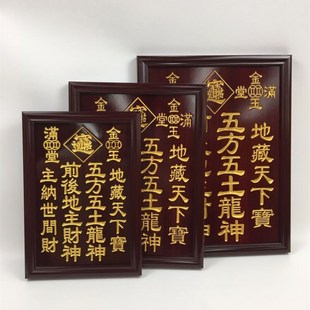 金玉
地藏天下寶
五方五土龍神
前後地主財神
滿堂
主納世間財
地藏天下寶
五方五土龍神
地藏天下寶
五方五土龍神